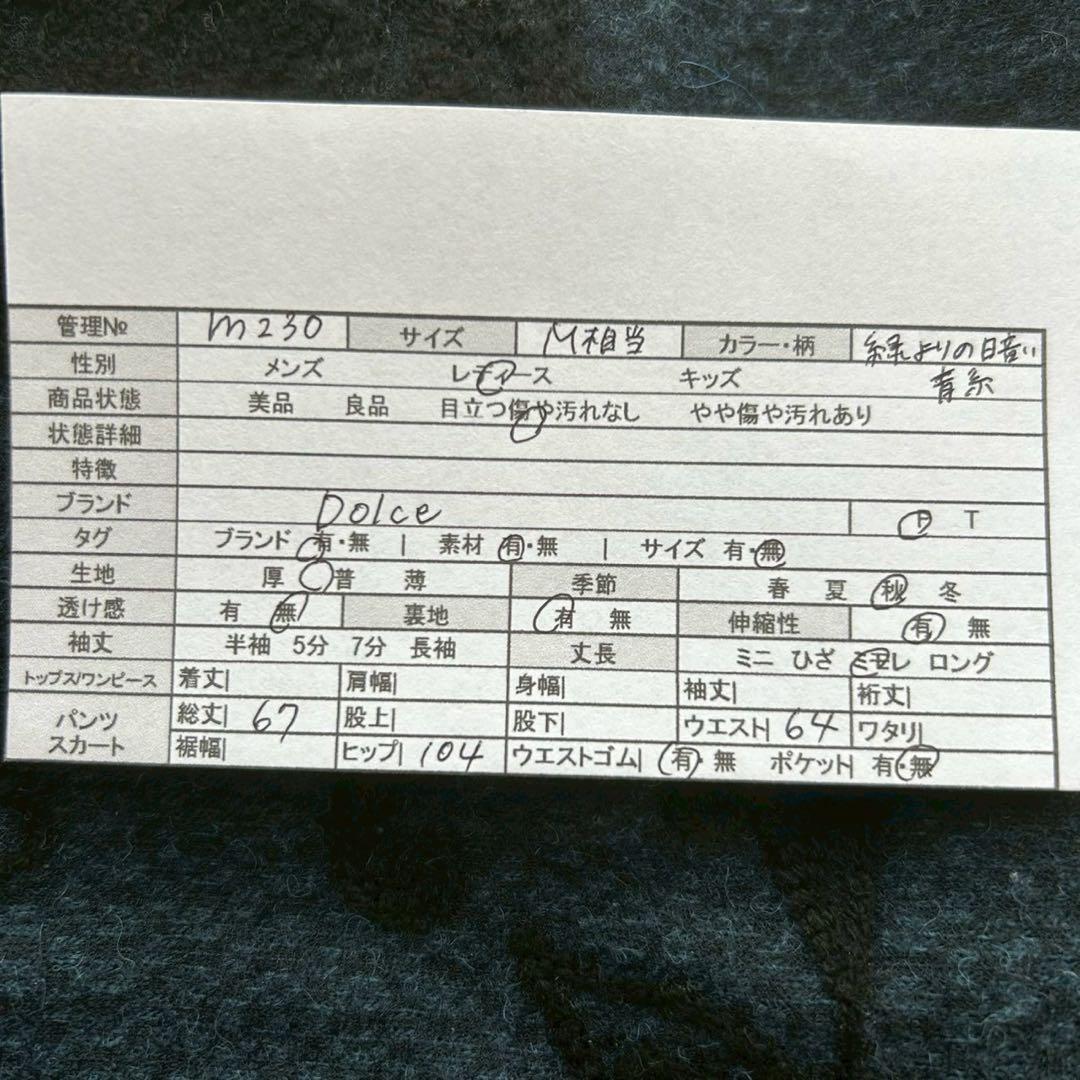 管理№ m230 サイズ M相当 カラー・柄 緑よりの暗い青系
性別 メンズ レディース キッズ
商品状態 美品 良品 目立つ傷や汚れなし やや傷や汚れあり
状態詳細
特徴
ブランド Dolce P T
タグ ブランド 有・無 | 素材 有・無 | サイズ 有・無
生地 厚 普 薄 季節 春 夏 秋 冬
透け感 有 無 裏地 有 無 伸縮性 有 無
袖丈 半袖 5分 7分 長袖 丈長 ミニ ひざ ミモレ ロング
トップス/ワンピース 着丈| 肩幅| 身幅| 袖丈| 裄丈|
パンツ スカート 総丈| 67 股上| 股下| ウエスト| 64 ワタリ|
裾幅| ヒップ| 104 ウエストゴム| 有・無 ポケット| 有・無